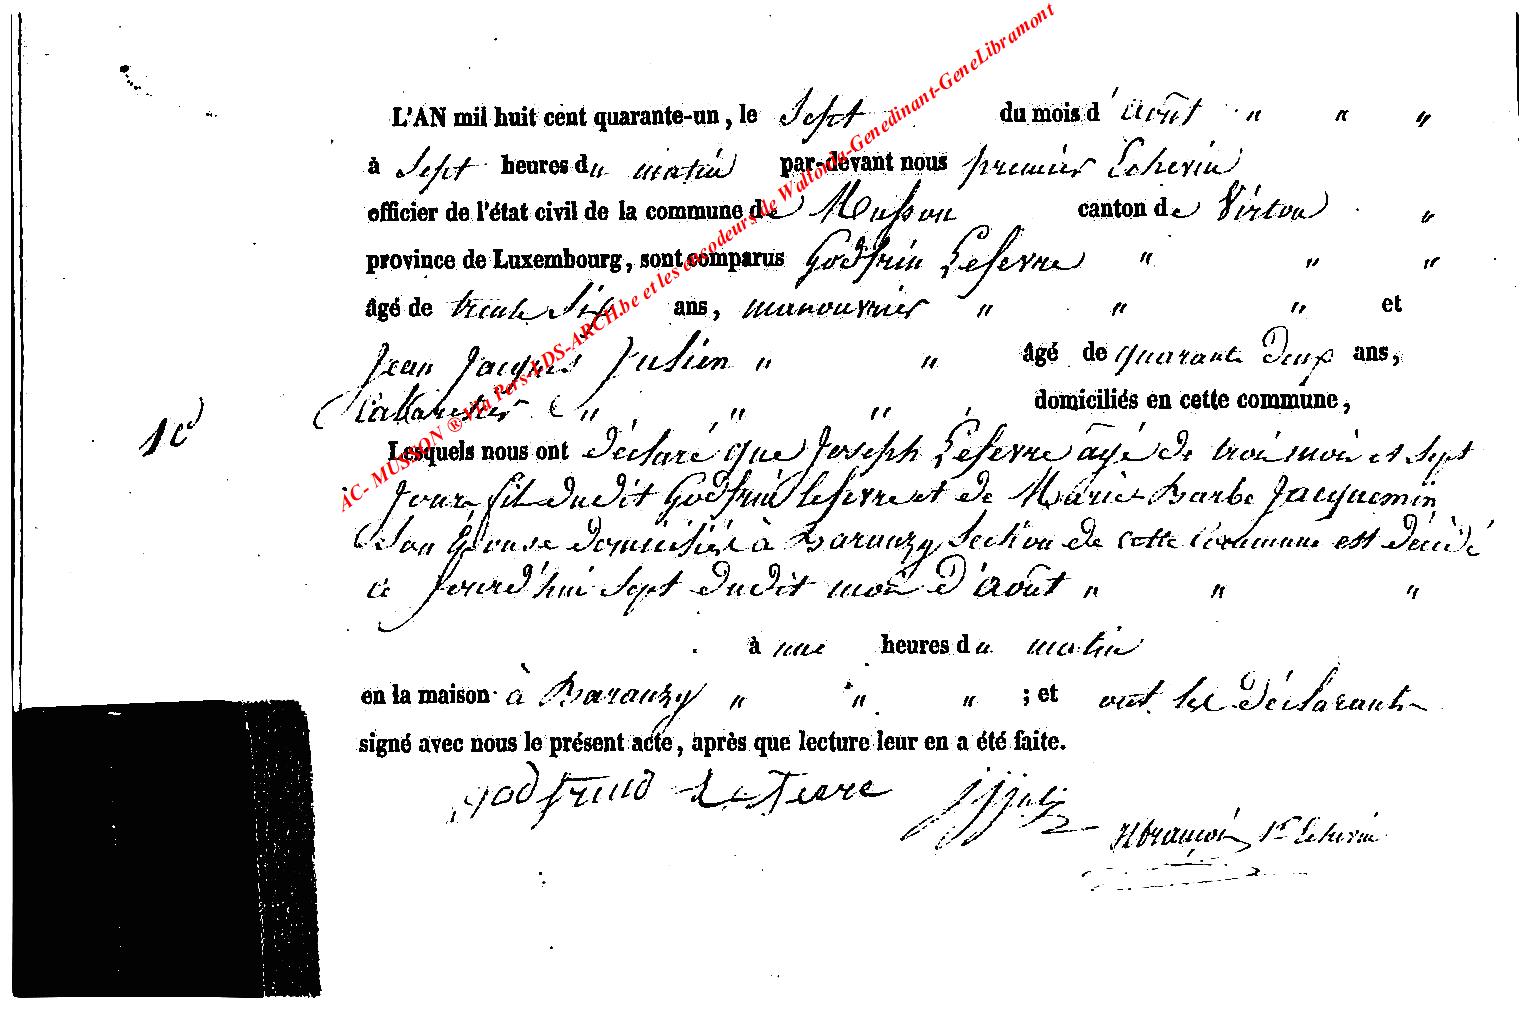 L'AN mil huit cent quarante-un, le Sept du mois d'août " " "
à Sept heures du matin par-devant nous premier Echevin
officier de l'état civil de la commune de Musson canton de Virton "
province de Luxembourg, sont comparus Godfrin Lefevre " " "
âgé de trente Six ans, manouvrier " " " et
Jean Jacques Julien " " âgé de quarante Deux ans,
Cabaretier " " " domiciliés en cette commune,
1c
Lesquels nous ont déclaré que Joseph Lefevre âgé de trois mois et sept
Jours fils dudit Godfrin Lefevre et de Marie Barbe Jacquemin
Son Epouse domiciliée à Baranzy Section de cette Commune est décédé
ce Jourd'hui Sept dudit mois d'août " " "
à une heures du matin
en la maison à Baranzy " " " ; et ont les déclarants
signé avec nous le présent acte, après que lecture leur en a été faite.
godfrind Lefevre JJJuli 1er Echevin
AC- MUSSON ® Via Pers-LDS-ARCH.be et les encodeurs de Wallonia-Genedinant-GeneLibramont